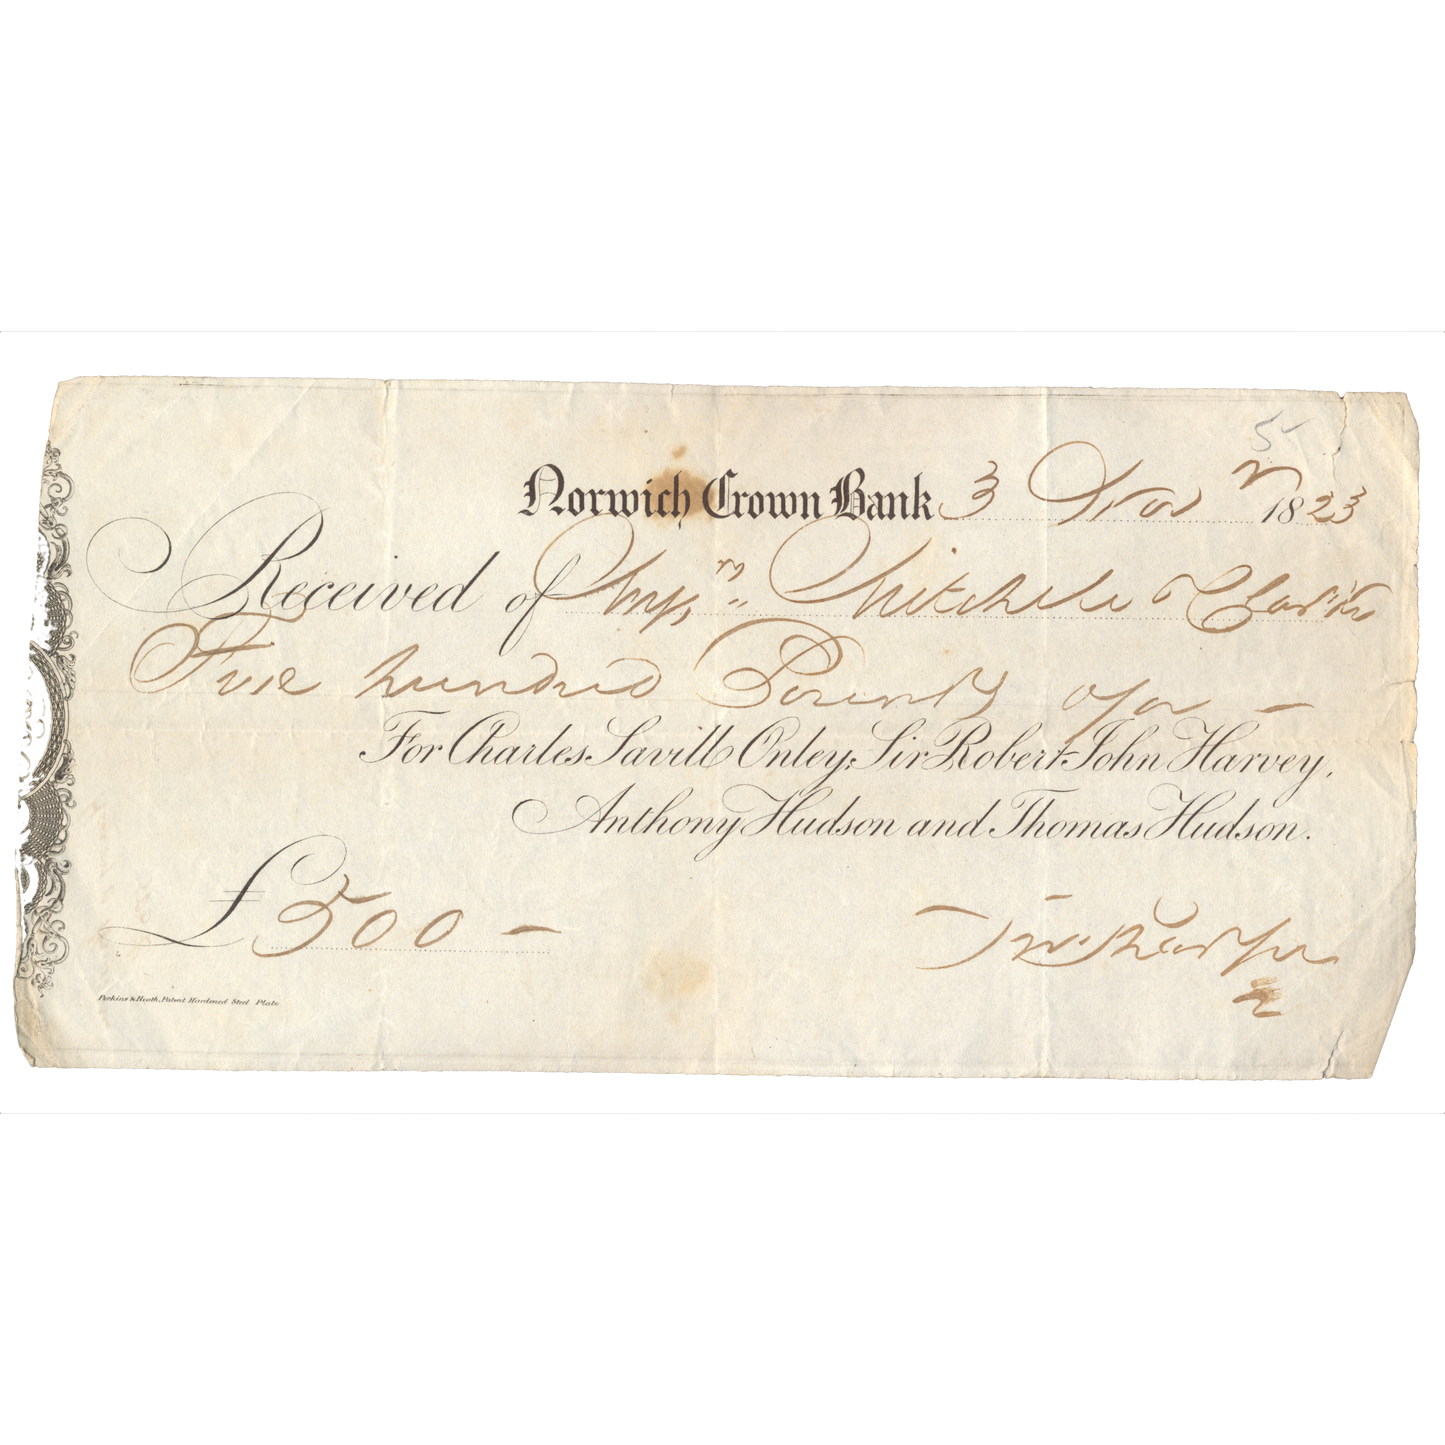 5
Norwich Crown Bank 3 Novr 1823
Received of Messrs Mitchell & Clarke
Five hundred Pounds
For Charles Savill Onley, Sir Robert John Harvey,
Anthony Hudson and Thomas Hudson.
£ 500 –
Perkins & Heath, Patent Hardened Steel Plate